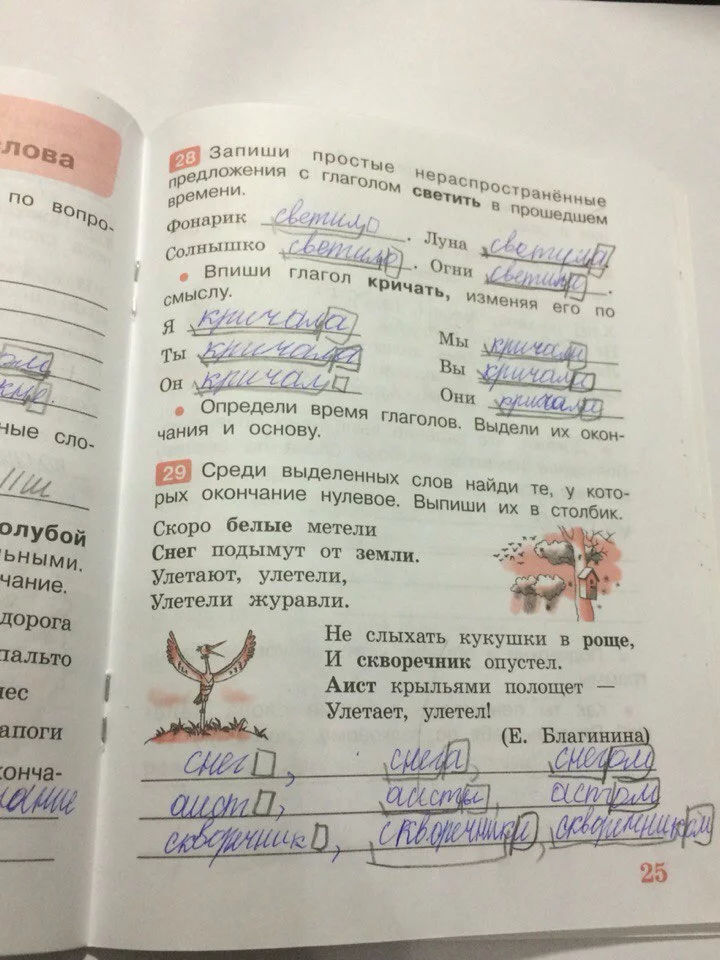 слова
по вопро-
ные сло-
олубой
льными.
чание.
дорога
пальто
нес
апоги
конча-
28 Запиши простые нераспространённые
предложения с глаголом светить в прошедшем
времени.
Фонарик светил. Луна светила
Солнышко светило. Огни светили.
• Впиши глагол кричать, изменяя его по
смыслу.
Я кричала Мы кричали
Ты кричала Вы кричали
Он кричал Они кричали
• Определи время глаголов. Выдели их окон-
чания и основу.
29 Среди выделенных слов найди те, у кото-
рых окончание нулевое. Выпиши их в столбик.
Скоро белые метели
Снег подымут от земли.
Улетают, улетели,
Улетели журавли.
Не слыхать кукушки в роще,
И скворечник опустел.
Аист крыльями полощет —
Улетает, улетел!
(Е. Благинина)
снег, снега, снегом
аист, аисты, астом
скворечник, скворечники, скворечником
25